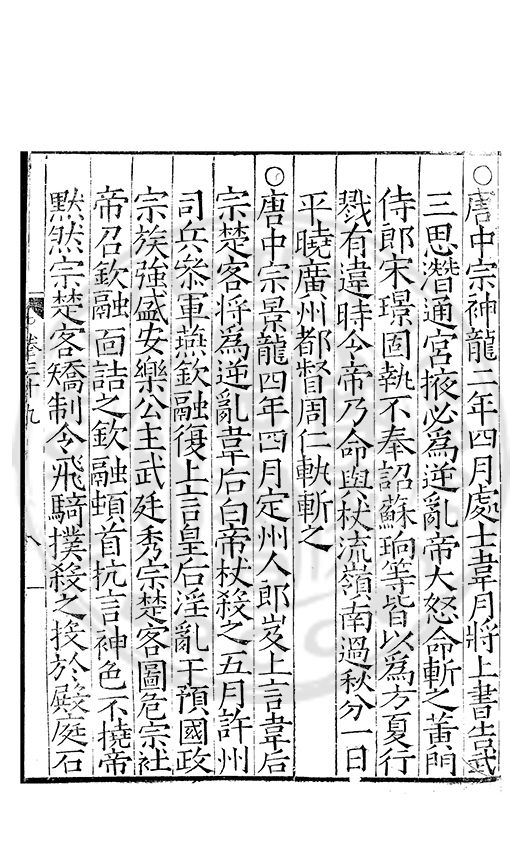 ○唐中宗神龍二年四月處士韋月將上書告武
三思潛通宮掖必為逆亂帝大怒命斬之黃門
侍郎宋璟固執不奉詔蘇珦等皆以為方夏行
戮有違時令帝乃命與杖流嶺南過秋分一日
平曉廣州都督周仁軌斬之
○唐中宗景龍四年四月定州人郎岌上言韋后
宗楚客將為逆亂韋后白帝杖殺之五月許州
司兵叅軍燕欽融復上言皇后淫亂干預國政
宗族強盛安樂公主武廷秀宗楚客圖危宗社
帝召欽融面詰之欽融頓首抗言神色不撓帝
默然宗楚客矯制令飛騎撲殺之投於殿庭石
卷三十九
八